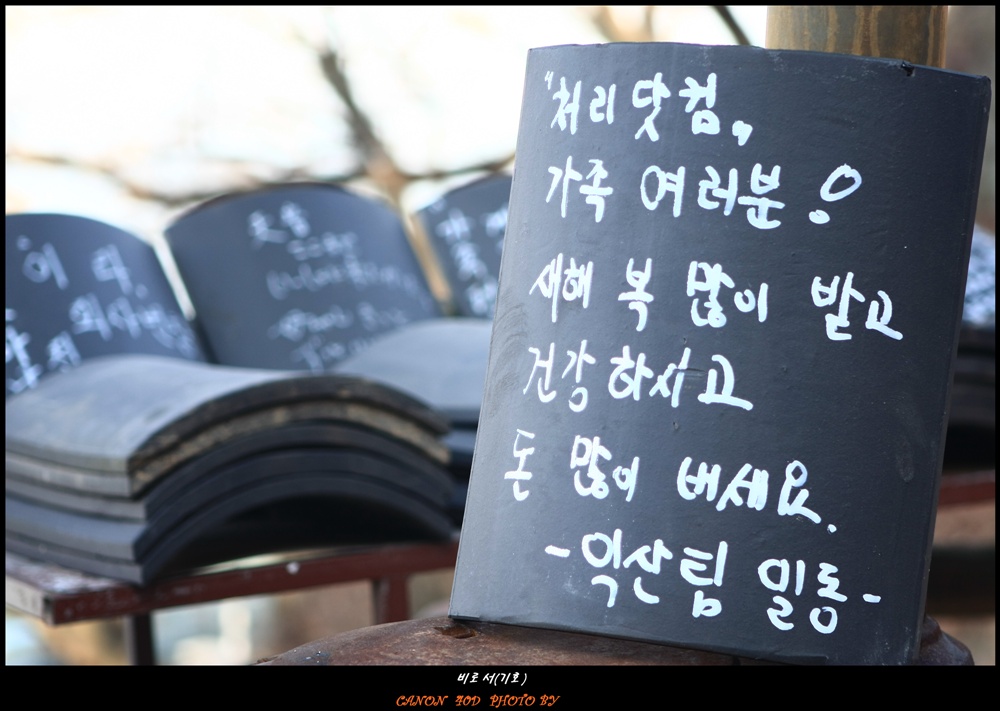 "처리닷컴"
가족 여러분!
새해 복 많이 받고
건강하시고
돈 많이 버세요.
-익산팀 일동-
이 다.
비로서(기호)
CANON 40D PHOTO BY